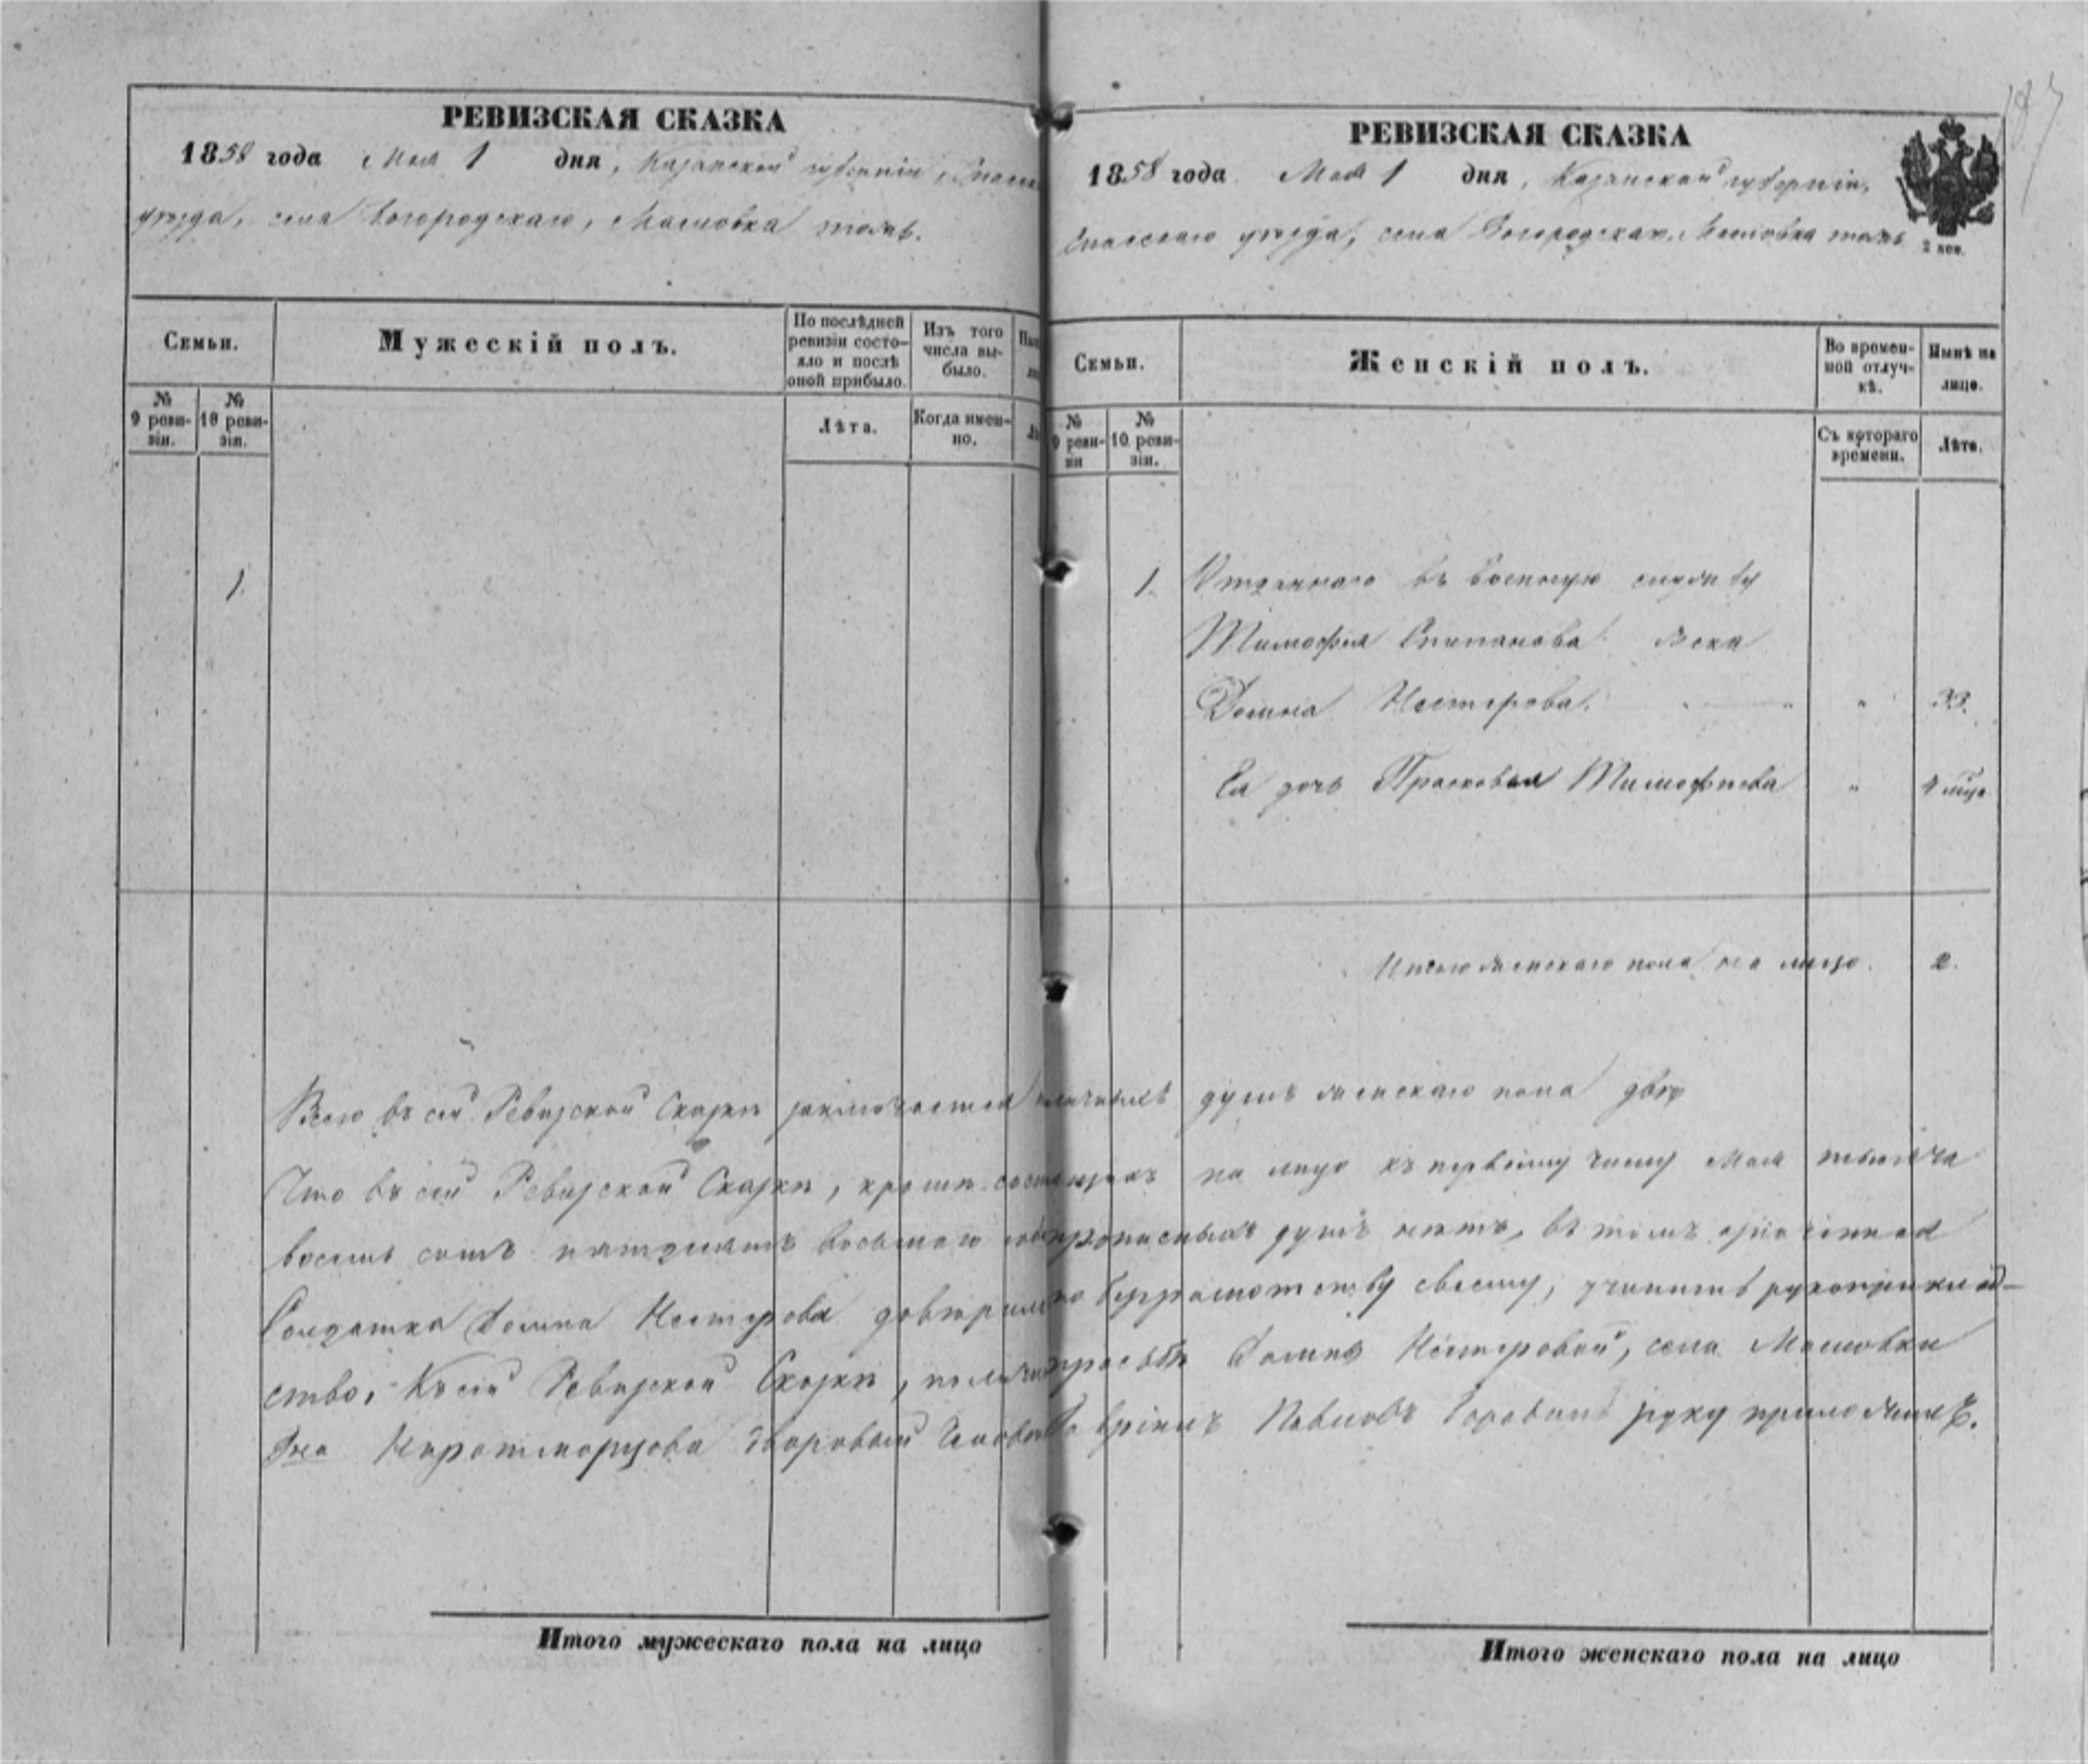 РЕВИЗСКАЯ СКАЗКА
1858 года Мая 1 дня, Казанской губерніи, Спасск
уѣзда, села Богородскаго, Масловка тожъ.
Семьи.
Мужескій полъ.
По послѣдней ревизіи состояло и послѣ оной прибыло.
Изъ того числа выбыло.
№ 9 ревизіи.
№ 10 ревизіи.
Лѣта.
Когда именно.
1.
РЕВИЗСКАЯ СКАЗКА
1858 года Мая 1 дня, Казанской губерніи,
Спасскаго уѣзда, села Богородскаго, Масловка тожъ
2 коп.
Семьи.
Женскій полъ.
Во временной отлучкѣ.
Нынѣ на лицо.
№ 9 ревизіи
№ 10 ревизіи.
Съ котораго времени.
Лѣта.
1. Отданнаго въ военную службу
Тимофея Степанова жена
Домна Нестерова. " 33.
Ея дочь Прасковья Тимофѣева "
Итого женскаго пола на лицо. 2.
Всего въ сей Ревизской Сказкѣ заключается наличныхъ душъ женскаго пола двѣ
Что въ сей Ревизской Сказкѣ, кромѣ состоящихъ на лицо къ первому числу Мая тысяча
восемь сотъ пятдесятъ восьмаго года прописныхъ душъ нѣтъ, въ томъ
Солдатка Домна Нестерова по безграмотству своему, учинить рукоприклад-
ство. Къ сей Ревизской Сказкѣ, прозьбѣ Домны Нестеровой, села Масловки
Гна дворовый Павловъ руку приложилъ.
Итого мужескаго пола на лицо
Итого женскаго пола на лицо